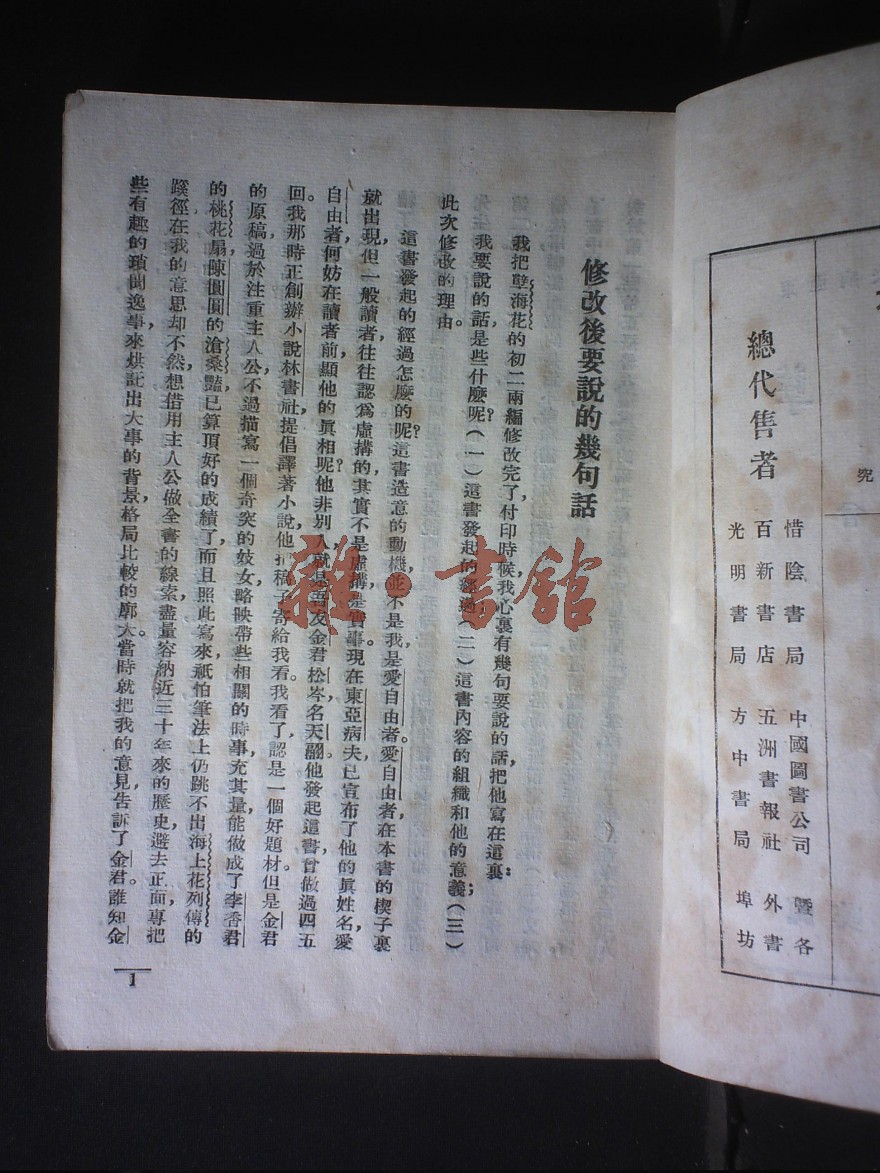 修改後要說的幾句話
我把孽海花的初二兩編修改完了，付印時候，我心裏有幾句要說的話，把他寫在這裏：
我要說的話是些什麽呢？（一）這書發起的經過；（二）這書內容的組織和他的意義；（三）
此次修改的理由。
這書發起的經過怎麽的呢？這書造意的動機，並不是我，是愛自由者。愛自由者，在本書的楔子裏
就出現，但一般讀者，往往認爲虛構的，其實不是虛構，是實事。現在東亞病夫，已宣布了他的眞姓名，愛
自由者，何妨在讀者前，顯他的眞相呢？他非別人，就是吾友金君松岑，名天翮。他發起這書，曾做過四五
回。我那時正創辦小說林書社，提倡譯著小說，他把稿子寄給我看。我看了，認是一個好題材。但是金君
的原稿，過於注重主人公，不過描寫一個奇突的妓女，略映帶些相關的時事，充其量，能做成了李香君
的桃花扇，陳圓圓的滄桑豔，已算頂好的成績了，而且照此寫來，祇怕筆法上仍跳不出海上花列傳的
蹊徑。在我的意思却不然，想借用主人公做全書的線索，盡量容納近三十年來的歷史，避去正面，專把
些有趣的瑣聞逸事，來烘託出大事的背景，格局比較的廓大。當時就把我的意見，告訴了金君。誰知金
1
總代售者
惜陰書局 中國圖書公司 曁各
百新書店 五洲書報社 外書
光明書局 方中書局 埠坊
究
雜·書館